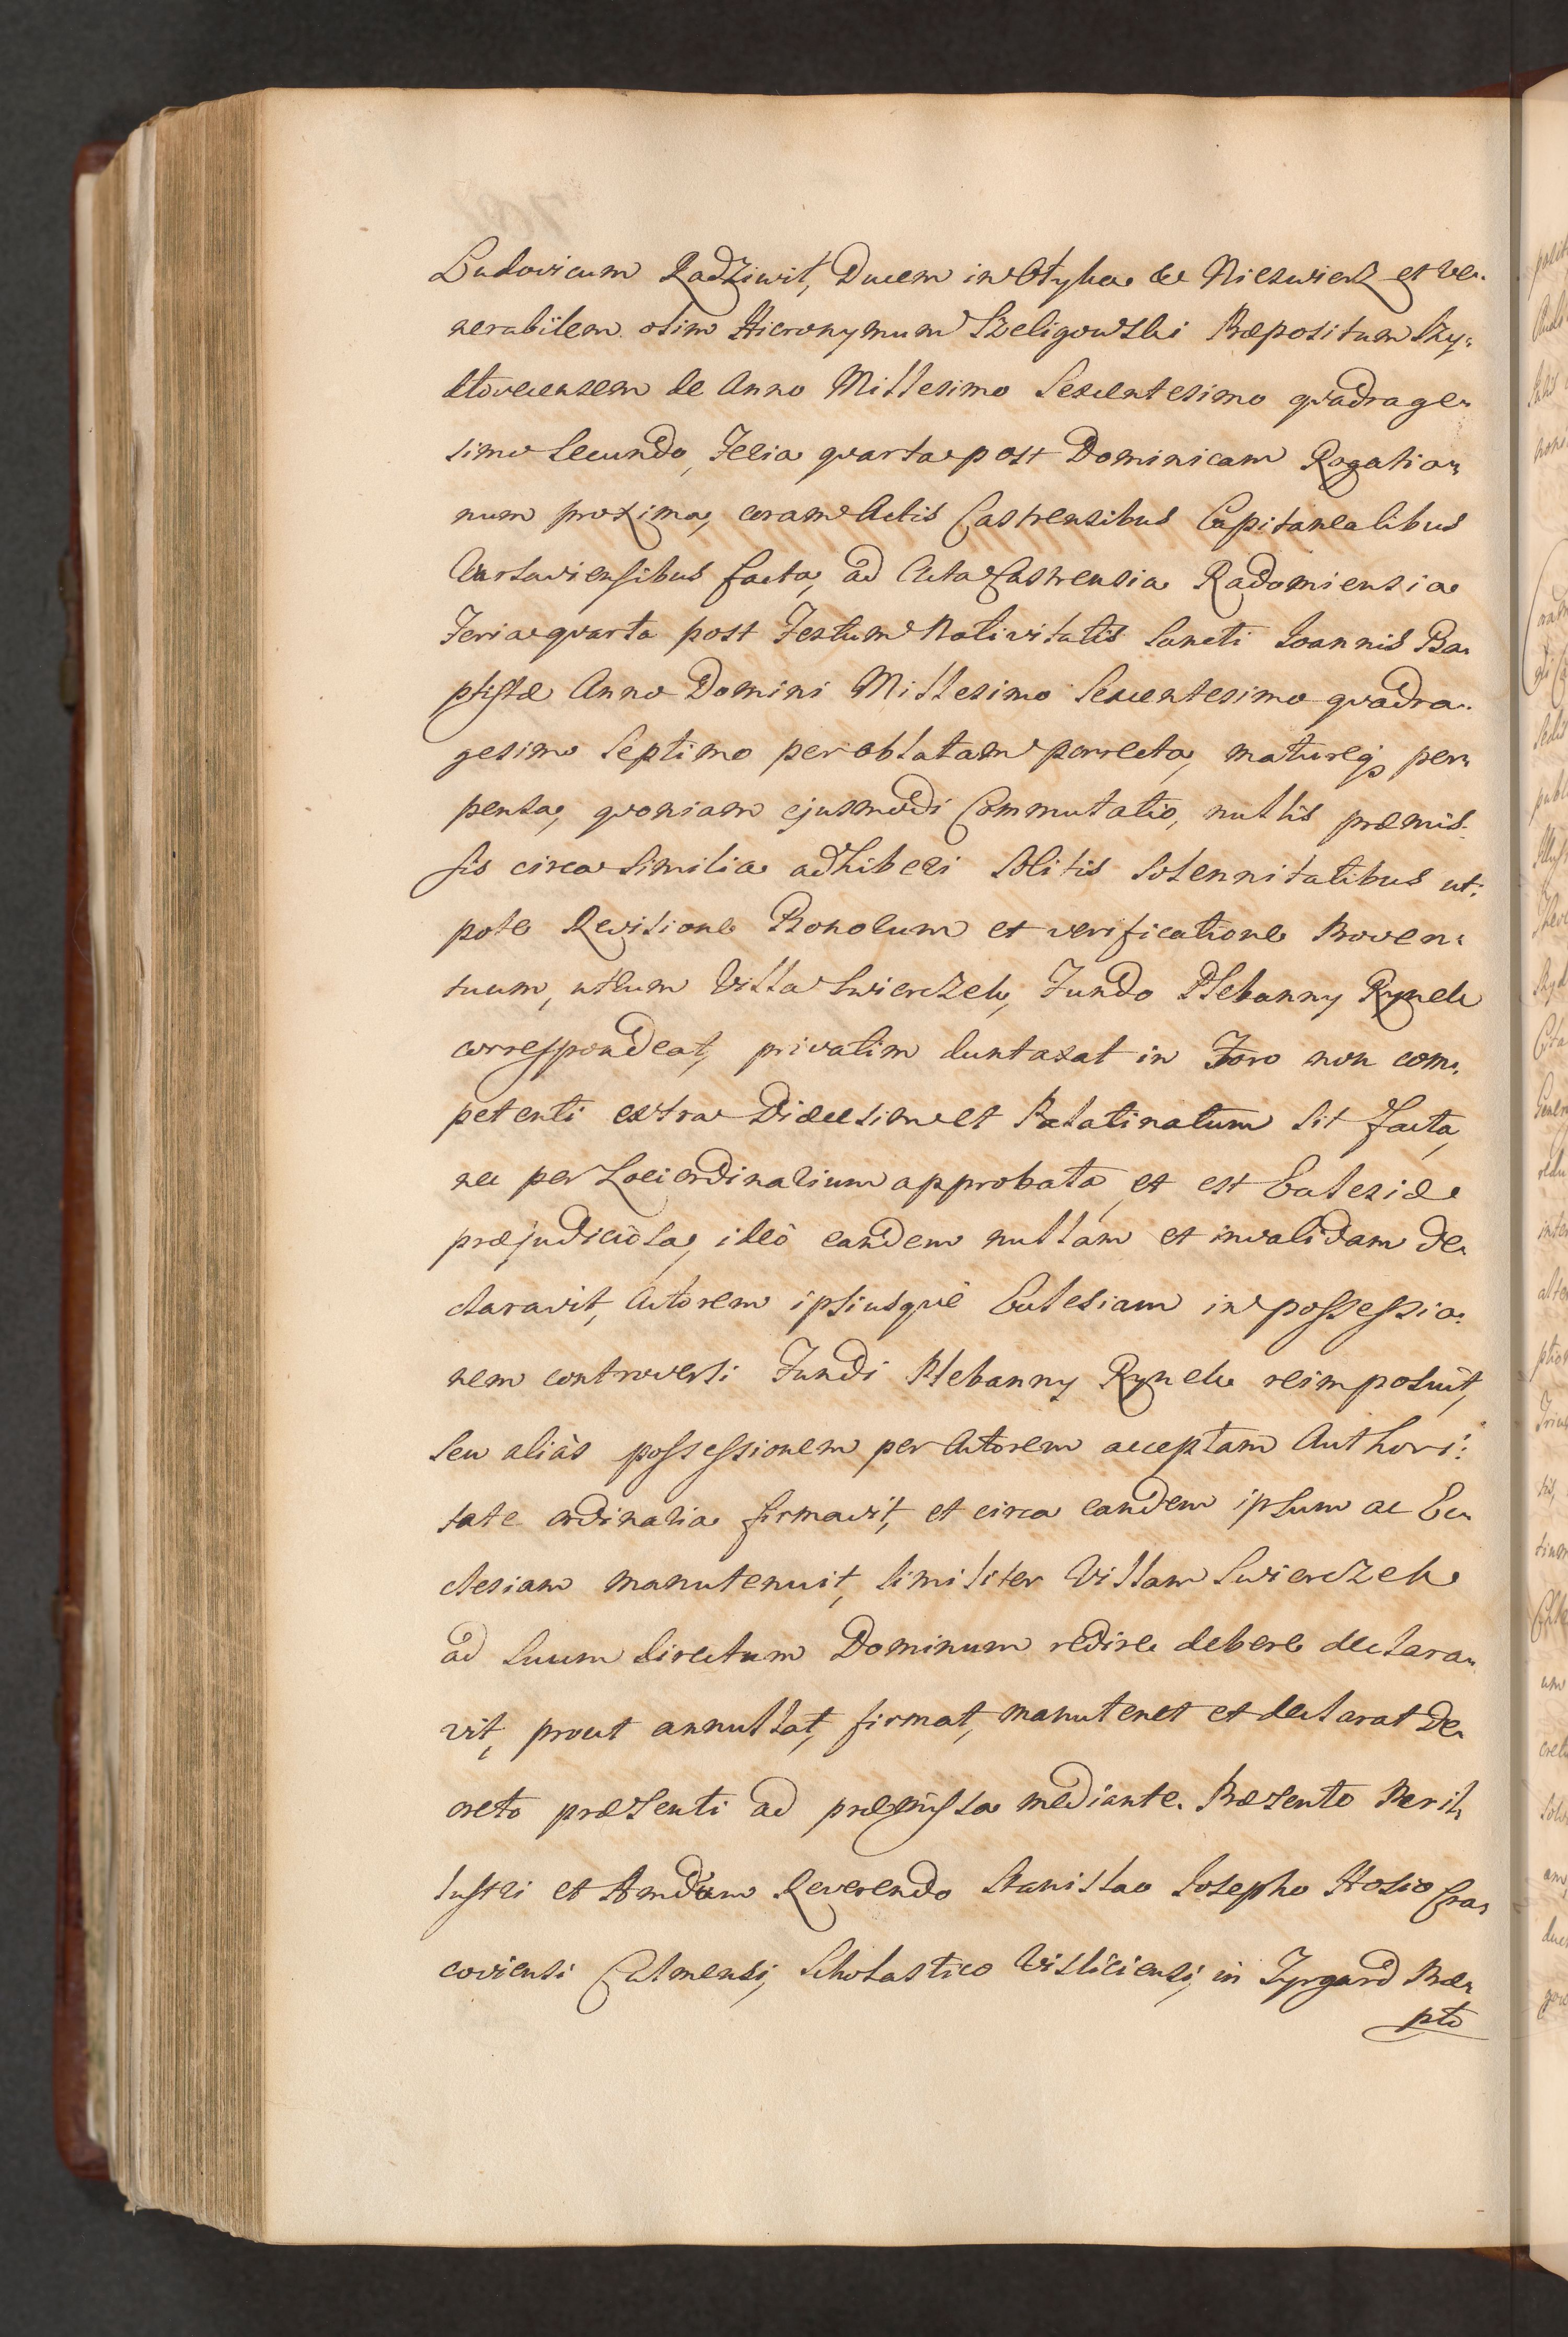 Ludovicum Radziwił, Ducem in Ołyka & Nieswierz et Ve-
nerabilem olim Hieronymum Szeligowski Præpositum Szy-
dłoviecensem de Anno Millesimo Sexcentesimo quadrage-
simo Secundo, Feria quarta post Dominicam Rogatio-
num proxima, coram Actis Castrensibus Capitanealibus
Varsaviensibus facta, ad Acta Castrensia Radomiensia
Feria quarta post Festum Nativitatis Sancti Joannis Ba-
ptistæ Anno Domini Millesimo Sexcentesimo quadra-
gesimo Septimo per oblatam porrecta, matureq3 per-
pensa, quoniam ejusmodi Commutatio, nullis præmis-
sis circa similia adhiberi solitis solennitatibus ut-
pote Revisione Bonorum et verificatione Proven-
tuum, utrum Villa Swierczek, Fundo Plebanny Rynek
correspondeat, privatim duntaxat in Foro non com-
petenti extra Diæcesim et Palatinatum sit facta,
nec per Loci ordinarium approbata, et est Eclesiæ
præjudiciosa, ideò eandem nullam et invalidam de-
claravit, Actorem ipsiusquè Eclesiam in possessio-
nem controversi Fundi Plebanny Rynek reimposuit,
seu aliàs possessionem per Actorem acceptam Authori-
tate ordinaria firmavit, et circa eandem ipsum ac Ec-
clesiam manutenuit, similiter Villam Swierczek
ad suum directum Dominum redire debere declara-
vit, prout annullat, firmat, manutenet et declarat De-
creto præsenti ad præmissa mediante. Præsente Peril-
lustri et Admodum Reverendo Stanislao Josepho Hosio Cra-
coviensi Culmensi, Scholastico Visliciensi, in Fyrgard Præ-
pto